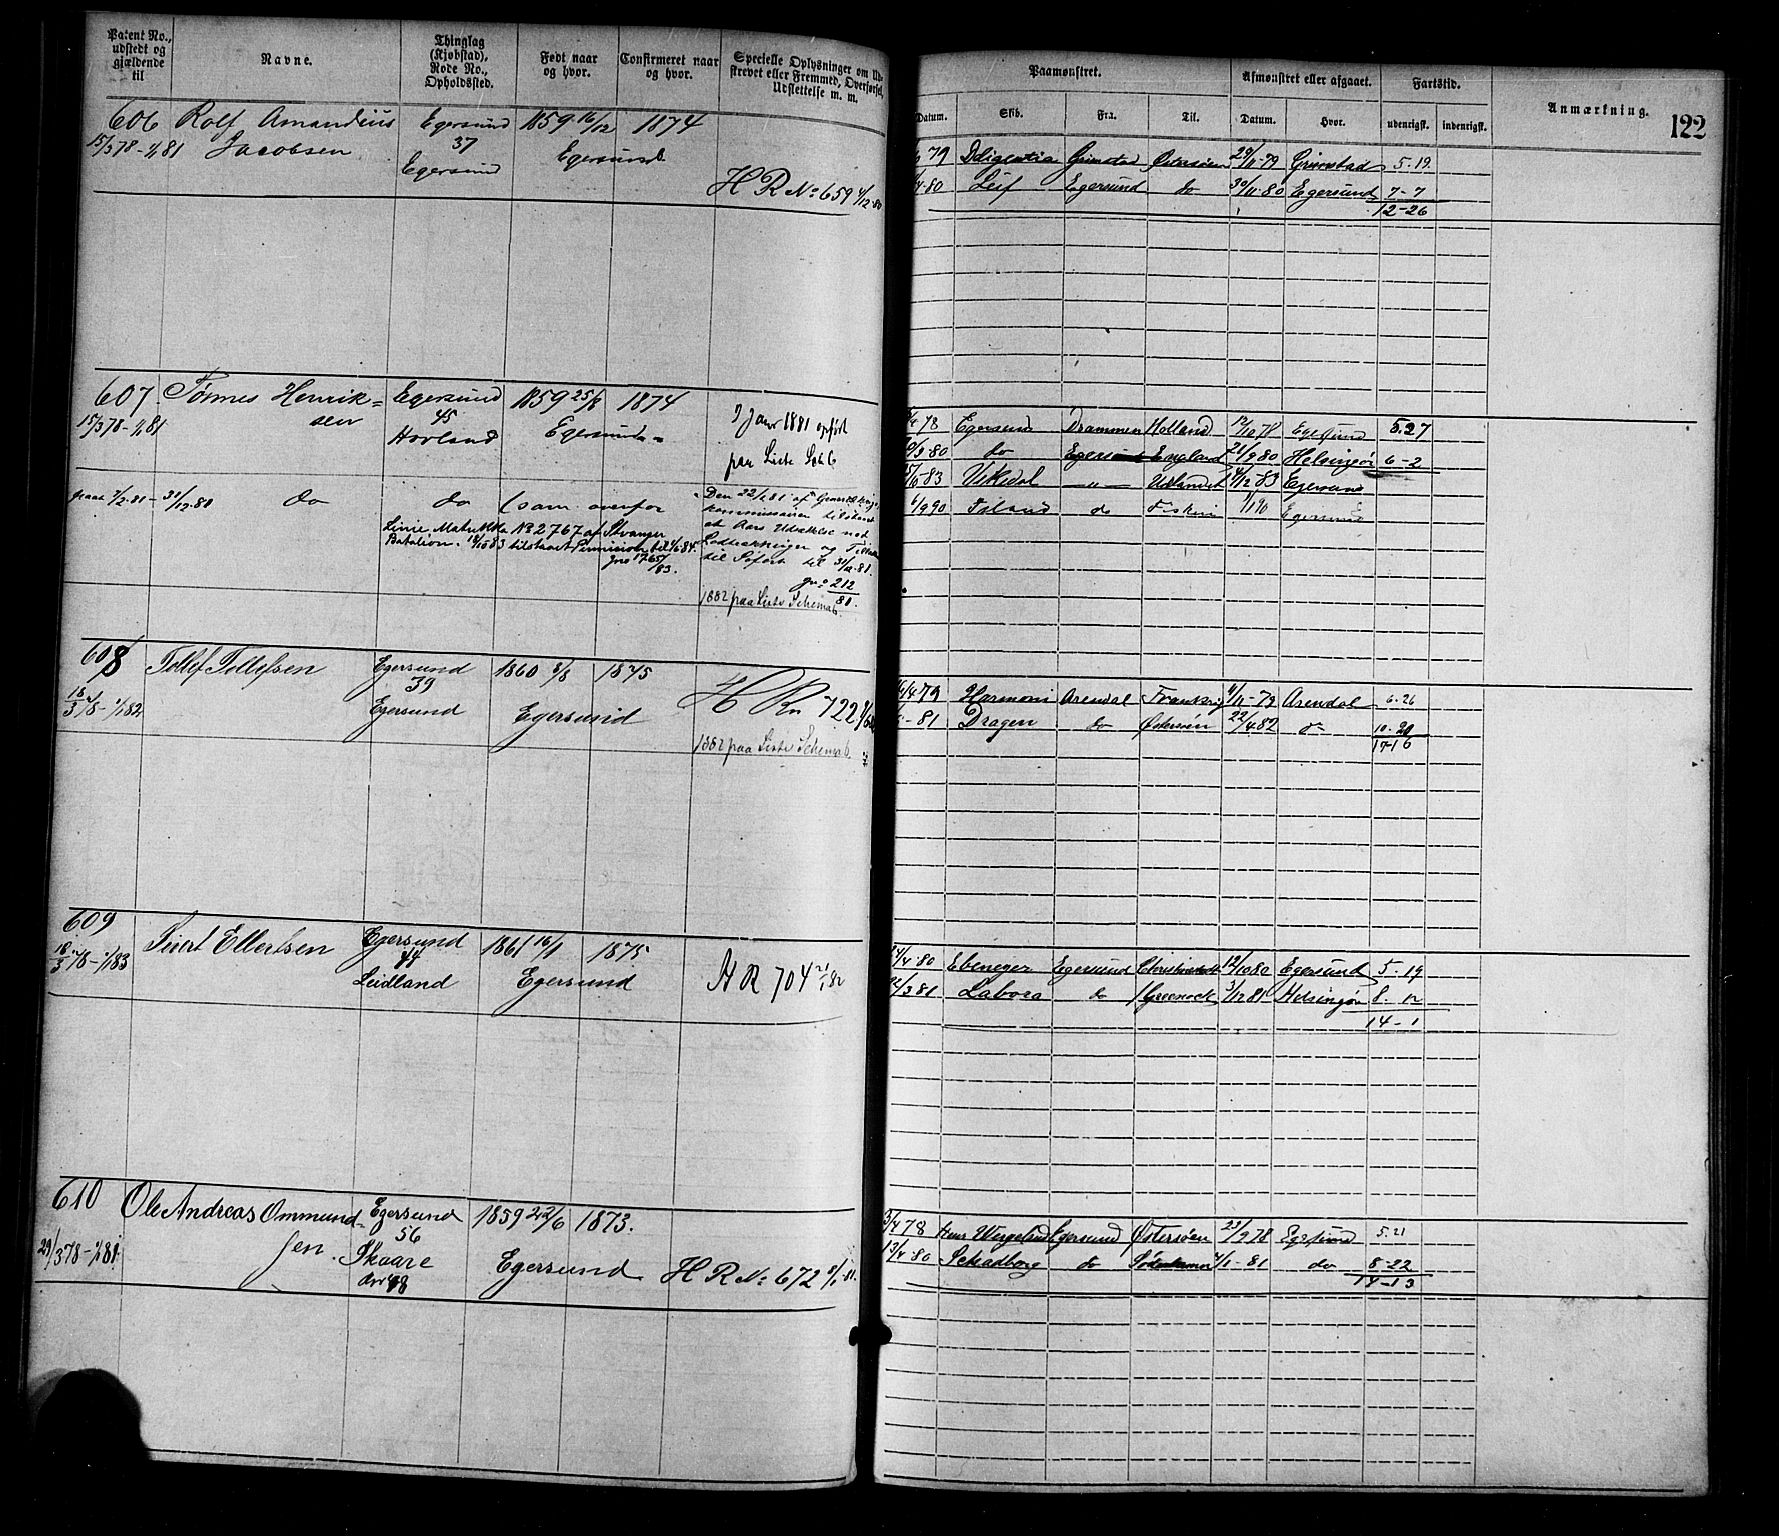 Patent No., udstedt og gjældende til
Navne.
Thinglag (Kjøbstad), Rode No., Opholdssted.
Født naar og hvor.
Confirmeret naar og hvor.
Specielle Oplysninger om Udskrevet eller Fremmed, Overførsel, Udslettelse m. m.
Paamønstret.
Afmønstret eller afgaaet.
Fartstid.
Anmærkning.
122
Datum.
Skib.
Fra.
Til.
Datum.
Hvor.
udenrigsk.
indenrigsk.
606 Rolf Amandius Egersund 1859 16/12 1874
15/3 78 - 1/1 81 Jacobsen 37 Egersund
Egersund
H R No 659 4/12 80
79 Diligentia Grimstad Østersøen 29/11 79 Grimstad 5-19
80 Leif Egersund do 30/11 80 Egersund 7-7
12-26
607 Tønnes Henrik= Egersund 1859 25/8 1874
15/3 78 - 1/1 81 sen 45 Egersund
Hovland
I Janr 1881 opført
paa Liste Sch 6
do do (som ovenfor
31/12 80
Linie Mats No 2767 af Stvanger
Batalion. 83 tilstaaet Permission til 84.
Den 22/1 81 af
at Aars Udsættelse med
til Søfart til 31/12 81.
212
81.
1882 paa Liste Schema 6
78 Egersund Drammen Holland 12/10 78 Egersund 5.27
80 do Egersund England 21/9 80 Helsingør 6-2
83 Vikedal - " - Udlandet 14/12 83 Egersund
90 do Fiskeri 90 Egersund
608 Tollef Tollefsen Egersund 1860 8/8 1875
18/3 78 - 1/1 82 39 Egersund
Egersund
H R 722
1882 paa Liste Schema 6.
79 Harmoni Arendal Frankrig 11 - 79 Arendal 6-26
81 Dragen do Østersøen 22/4 82 do 10-20
17-16
609 Sivert Ellertsen Egersund 1861 16/1 1875
18/3 78 - 1/1 83 44 Egersund
Leidland
H R 704 21/1 82
14/4 80 Ebeneser Egersund 12/10 80 Egersund 5-19
81 Labora do Greenock 3/12 81 Helsingør 8-12
14-1
610 Ole Andreas Ommund- Egersund 1859 22/6 1873.
29/3 78 - 1/1 81. sen 56 Egersund
Skaare
48
H R No 672 81.
3/4 78 Henr Wergeland Egersund Østersøen 78 Egersund 5.21
13/4 80 do 1 - 81 do 8-22
14-13